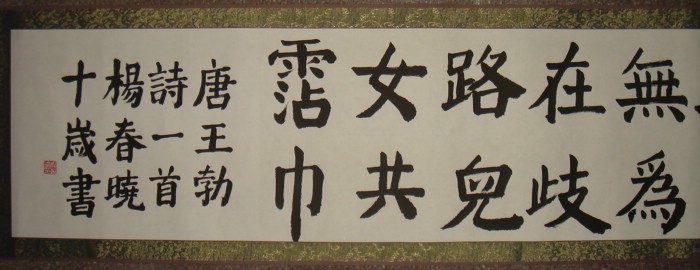 無為
在歧
路兒
女共
霑巾
唐王勃
詩一首
楊春曉
十歲書